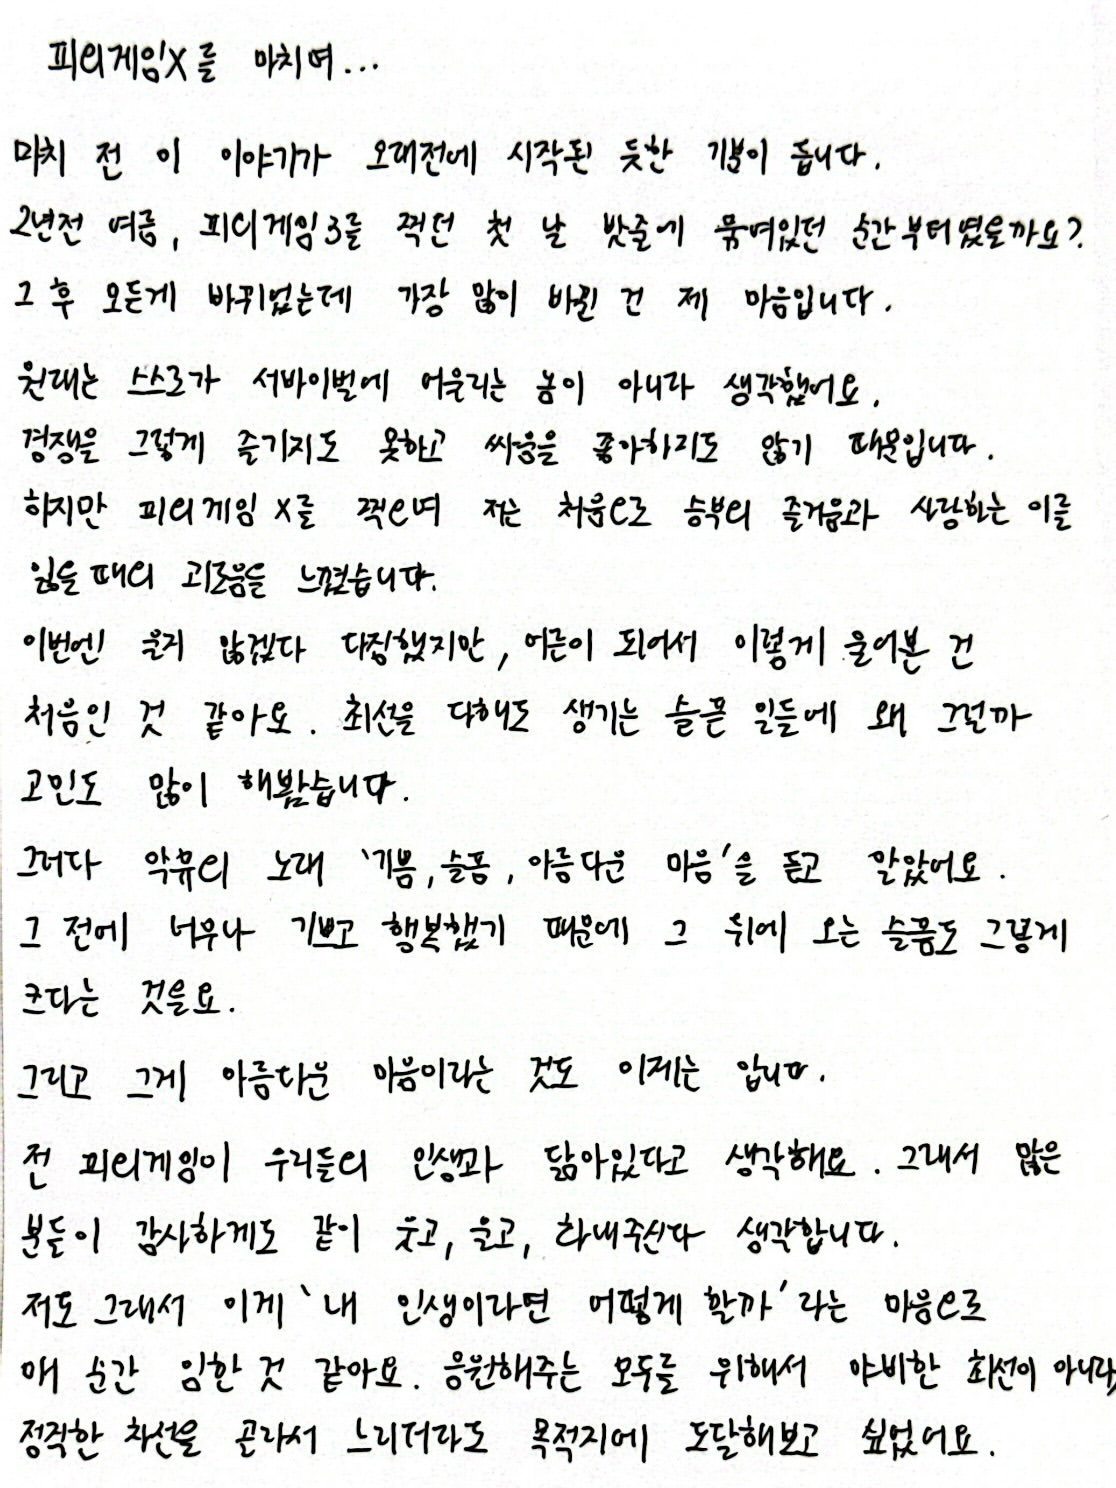 피의게임X를 마치며...
마치 전 이 이야기가 오래전에 시작된 듯한 기분이 듭니다.
2년전 여름, 피의게임3를 찍던 첫 날 밧줄에 묶여있던 순간부터였을까요?
그 후 모든게 바뀌었는데 가장 많이 바뀐 건 제 마음입니다.
원래는 스스로가 서바이벌에 어울리는 놈이 아니라 생각했어요.
경쟁을 그렇게 즐기지도 못하고 싸움을 좋아하지도 않기 때문입니다.
하지만 피의게임X를 찍으며 저는 처음으로 승부의 즐거움과 사랑하는 이를
잃을 때의 괴로움을 느꼈습니다.
이번엔 울지 않겠다 다짐했지만, 어른이 되어서 이렇게 울어본 건
처음인 것 같아요. 최선을 다해도 생기는 슬픈 일들에 왜 그런까
고민도 많이 해봤습니다.
그러다 악뮤의 노래 '기쁨, 슬픔, 아름다운 마음'을 듣고 알았어요.
그 전에 너무나 기쁘고 행복했기 때문에 그 뒤에 오는 슬픔도 그렇게
크다는 것을요.
그리고 그게 아름다운 마음이라는 것도 이제는 압니다.
전 피의게임이 우리들의 인생과 닮아있다고 생각해요. 그래서 많은
분들이 감사하게도 같이 웃고, 울고, 화내주신다 생각합니다.
저도 그래서 이게 '내 인생이라면 어떻게 할까'라는 마음으로
매 순간 임한 것 같아요. 응원해주는 모두를 위해서 야비한 최선이 아니라,
정직한 차선을 골라서 느리더라도 목적지에 도달해보고 싶었어요.